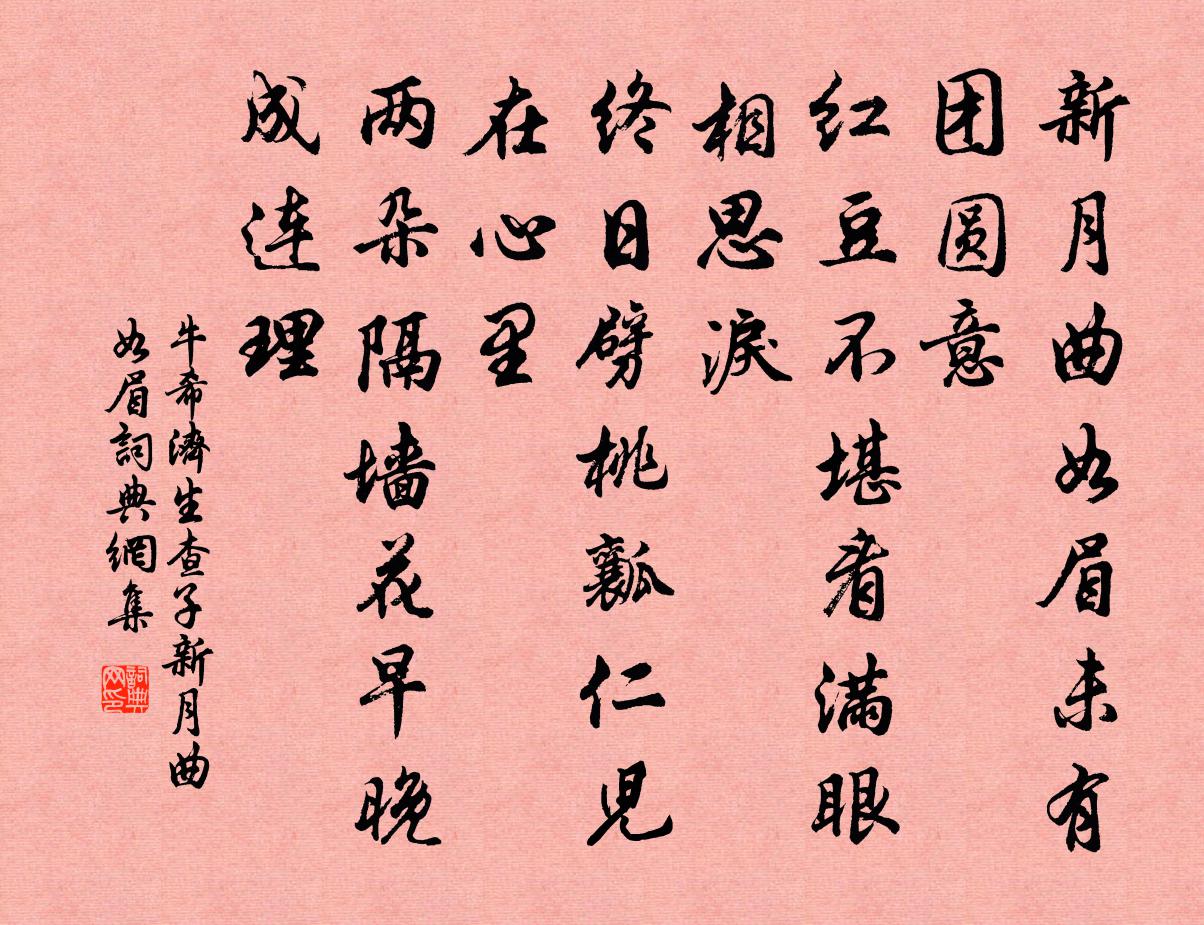 新月曲如眉未有
团圆意
红豆不堪看满眼
相思淚
终日劈桃瓤仁児
在心里
两朵隔墙花早晚
成连理
牛希濟生查子新月曲
如眉詞典網集
詞典网印